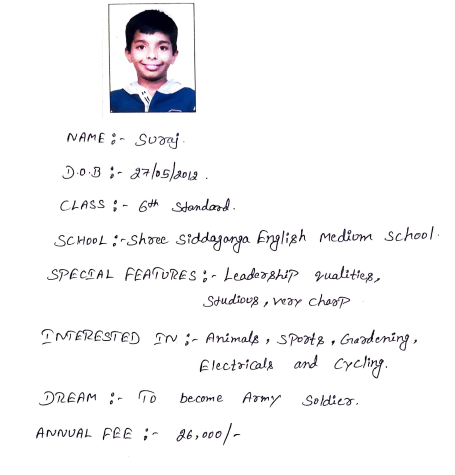 NAME :- Suraj.
D.O.B :- 27/05/2012.
CLASS :- 6th Standard.
SCHOOL :- Shree Siddaganga English Medium School.
SPECIAL FEATURES :- Leadership qualities,
Studious, very Charp
INTERESTED IN :- Animals, Sports, Gardening,
Electricals and Cycling.
DREAM :- To become Army Soldier.
ANNUAL FEE :- 26,000/-